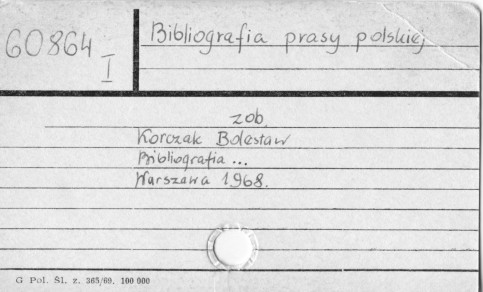 60864
I
Bibliografia prasy polskiej
zob.
Korczak Bolesław
Bibliografia ...
Warszawa 1968.
G Pol. Śl. z. 365/69. 100 000